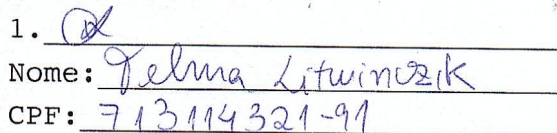 1.
Nome: Telma Litwinczik
CPF: 713114321-91